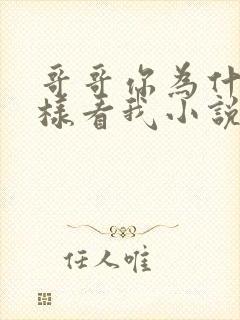 哥哥你為什
樣看我小說
任人唯